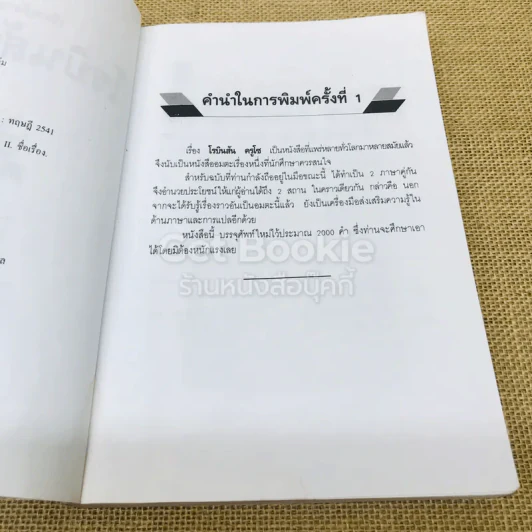 : ทฤษฎี 2541
II. ชื่อเรื่อง.
คำนำในการพิมพ์ครั้งที่ 1
เรื่อง โรบินสัน ครูโซ เป็นหนังสือที่แพร่หลายทั่วโลกมาหลายสมัยแล้ว
จึงนับเป็นหนังสืออมตะเรื่องหนึ่งที่นักศึกษาควรสนใจ
สำหรับฉบับที่ท่านกำลังถืออยู่ในมือขณะนี้ ได้ทำเป็น 2 ภาษาคู่กัน
จึงอำนวยประโยชน์ให้แก่ผู้อ่านได้ถึง 2 สถาน ในคราวเดียวกัน กล่าวคือ นอก
จากจะได้รับรู้เรื่องราวอันเป็นอมตะนี้แล้ว ยังเป็นเครื่องมือส่งเสริมความรู้ใน
ด้านภาษาและการแปลอีกด้วย
หนังสือนี้ บรรจุศัพท์ใหม่ไว้ประมาณ 2000 คำ ซึ่งท่านจะศึกษาเอา
ได้โดยมิต้องหนักแรงเลย
Get Bookie
ร้านหนังสือบุ๊คกี้